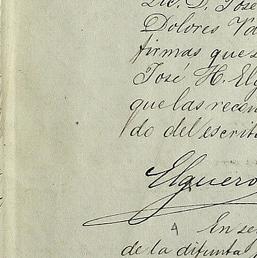 Lic. D. José
Dolores Va
firmas que s
José H. Elg
que las recon
do del escrit
Elguero
En se
de la difunta